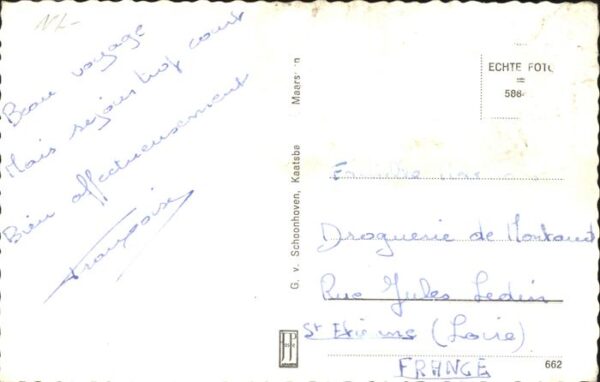 NL-
Beau voyage
Mais séjour trop court
Bien affectueusement
Françoise
G. v. Schoonhoven, Kaatsba Maarssen
ECHTE FOTO
=
586-
Droguerie de Montaud
Rue Jules Ledin
St Etienne (Loire)
FRANCE
662